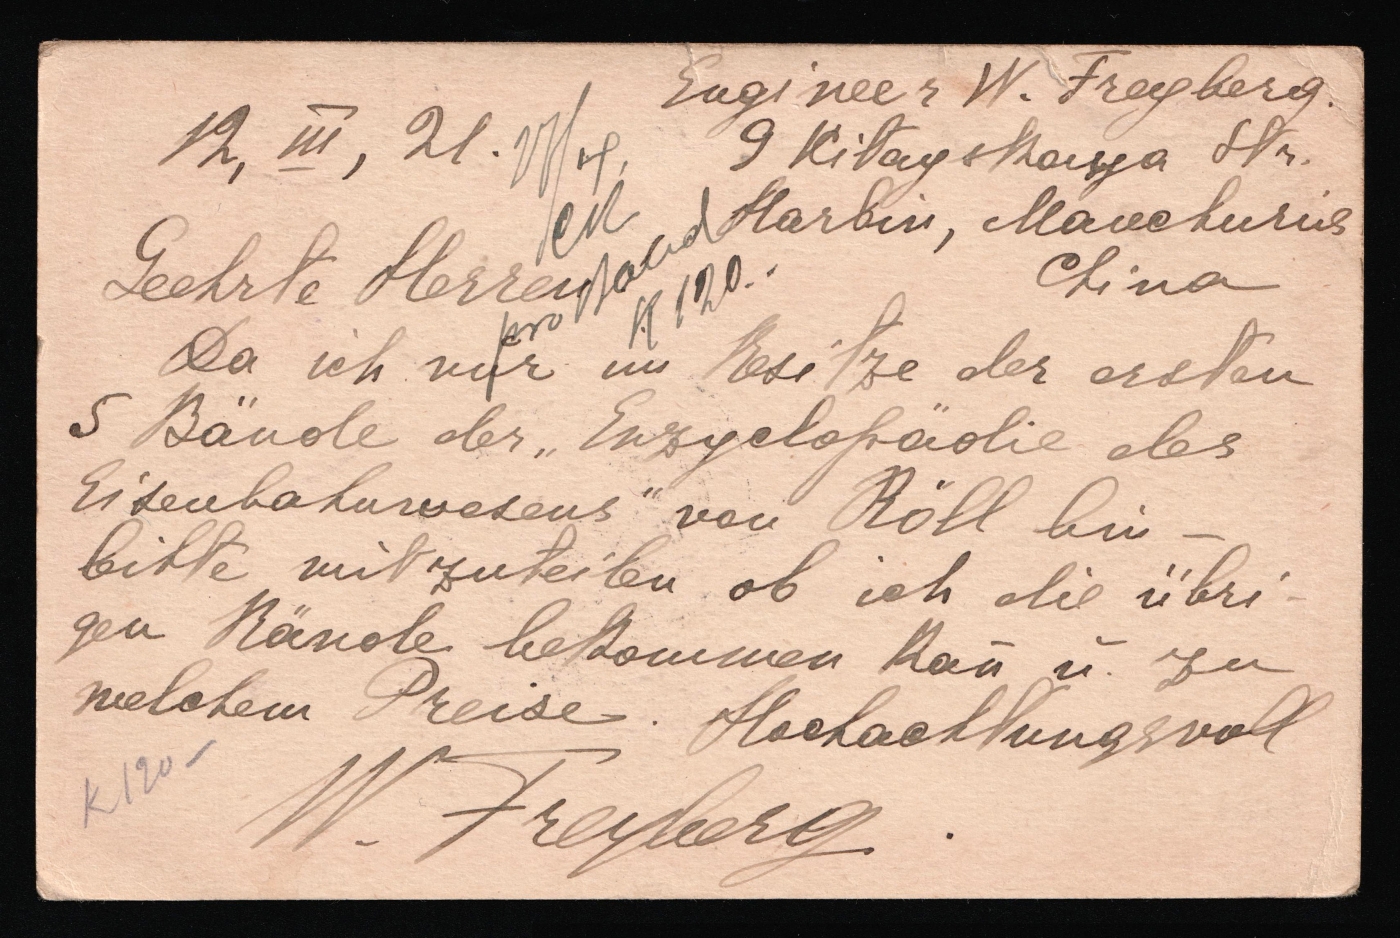 Engineer W. Freyberg.
12, III, 21.
9 Kitayskaya Str.
Harbin, Manchuria
China
27/4.
pro Band
K 120.
Geehrte Herren
Da ich nur im Besitze der ersten
5 Bände der „Enzyclopädie des
Eisenbahnwesens" von Röll bin –
bitte mitzuteilen ob ich die übri-
gen Bände bekommen kan̄ u. zu
welchem Preise. Hochachtungsvoll
K 120 –
W. Freyberg.